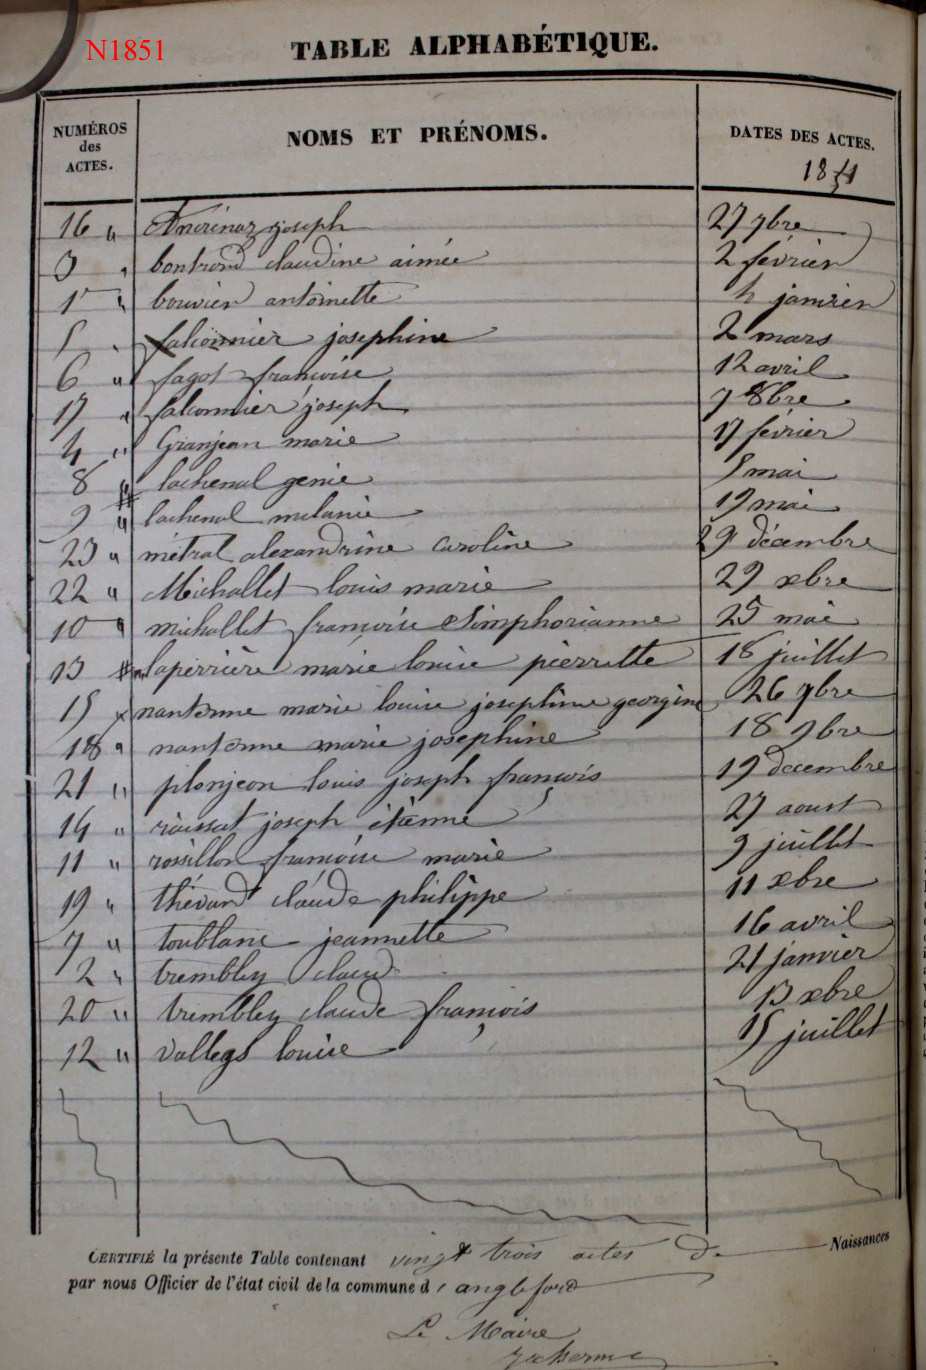 N1851
TABLE ALPHABÉTIQUE.
NUMÉROS
des
ACTES.
NOMS ET PRÉNOMS.
DATES DES ACTES.
1851
16 " joseph 27 7bre
3 " bontrond claudine aimée 2 février
1 " bouvier antoinette 4 janvier
5 " falconnier josephine 2 mars
6 " fagot françoise 12 avril
17 " falconnier joseph 7 8bre
4 " Granjean marie 17 février
8 " lachenal genie 5 mai
9 " lachenal melanie 19 mai
23 " métral alexandrine caroline 29 décembre
22 " Michallet louis marie 29 xbre
10 " michallet françoise Simphorianne 25 mai
13 " laperrière marie louise pierrette 18 juillet
15 nanterme marie louise josephine georgine 26 7bre
18 " nanterme marie josephine 18 9bre
21 " plonjeon louis joseph françois 19 decembre
14 " joseph étienne 27 aoust
11 " rossillon françoise marie 9 juillet
19 " claude philippe 11 xbre
7 " toublanc jeannette 16 avril
2 " trembley claud 21 janvier
20 " trembley claude françois 13 xbre
12 " louise 15 juillet
CERTIFIÉ la présente Table contenant vingt trois actes de Naissances
par nous Officier de l'état civil de la commune d'angleford
Le Maire